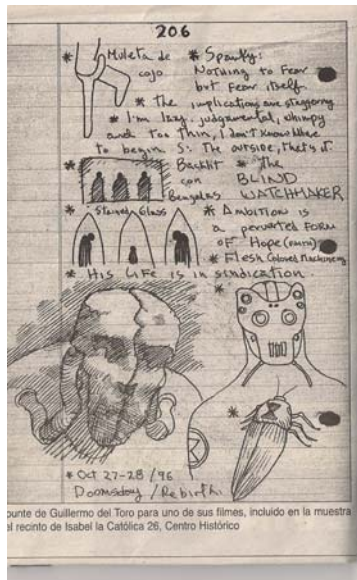 206
* Muleta de cojo
* Spanky:
Nothing to Fear
but Fear itself.
* The implications are staggering
* I'm lazy, judgmental, whimpy
and too thin, I don't know where
to begin. S: The outside, that's it.
* Backlit con Bengalas
* The BLIND WATCHMAKER
* Stained Glass
* AMBITION is
a perverted FORM
OF Hope
* Flesh Colored Machinery
* His LIFE is in sindication.
*
*
* Oct 27-28/96
Doomsday / Rebirth.
punte de Guillermo del Toro para uno de sus filmes, incluido en la muestra
el recinto de Isabel la Católica 26, Centro Histórico